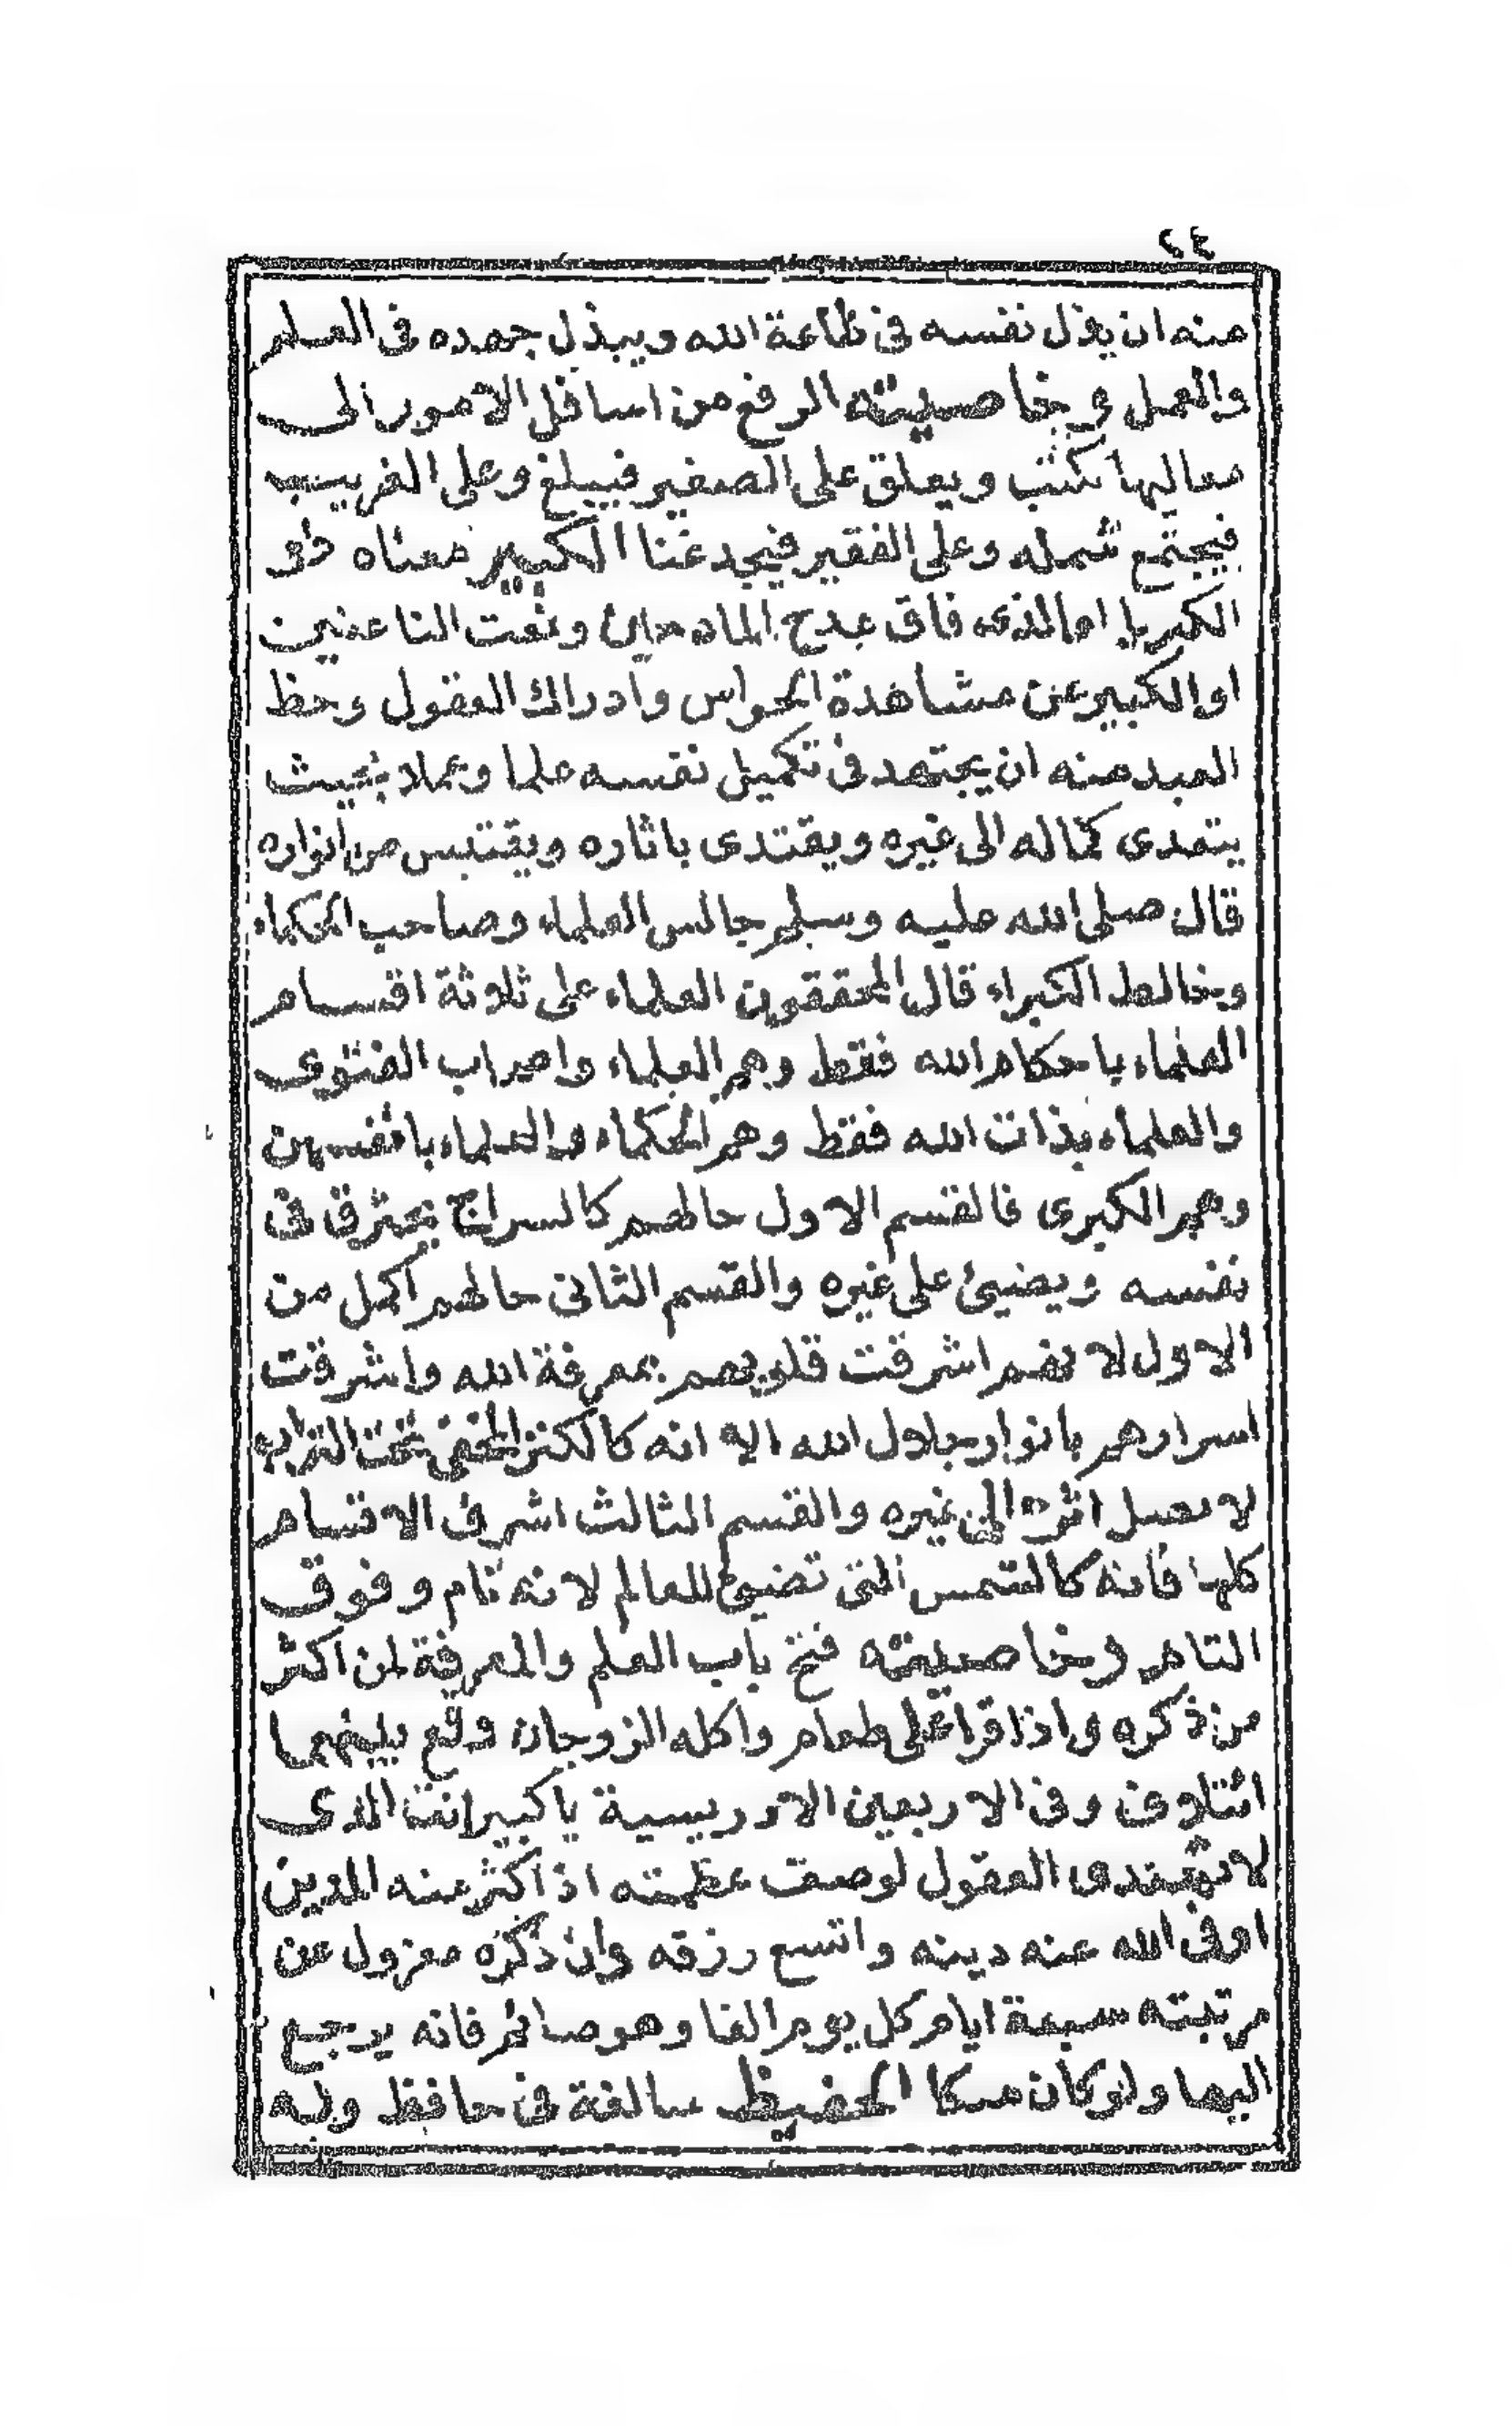 ٢٤
منه ان يذل نفسه في طاعة الله ويبذل جهده في العلم
والعمل وخاصيته الرفع من اسافل الامور الى
معاليها تكتب ويعلق على الصغير فيبلغ وعلى الغريب
فيجتمع شمله وعلى الفقير فيجد غنا الكبير معناه ذو
الكبريا اما الذى فاق مدح المادحين ونعت الناعتين
او الكبير عن مشاهدة الحواس وادراك العقول وحظ
العبد منه ان يجتهد فى تكميل نفسه علما وعملا بحيث
يتعدى كماله الى غيره ويقتدى باثاره ويقتبس من انواره
قال صلى الله عليه وسلم جالس العلماء وصاحب الحكماء
وخالط الكبراء قال المحققون العلماء على ثلاثة اقسام
العلماء باحكام الله فقط وهم العلماء واصحاب الفتوى
والعلماء بذات الله فقط وهم الحكماء والعلماء بالقسمين
وهم الكبرى فالقسم الاول حالهم كالسراج يحترق فى
نفسه ويضيئ على غيره والقسم الثانى حالهم اكمل من
الاول لانهم اشرقت قلوبهم بمعرفة الله واشرقت
اسرارهم بانوار جلال الله الا انه كالكنز المخفى تحت التراب
لا يصل اثره الى غيره والقسم الثالث اشرف الاقسام
كلها فانه كالشمس التى تضيئ للعالم لانه تام وفوق
التام وخاصيته فتح باب العلم والمعرفة لمن اكثر
من ذكره واذا قرا على طعام واكله الزوجان وقع بينهما
ائتلاف وفى الاربعين الادريسية يا كبير انت الذى
لا تهتدى العقول لوصف عظمته اذا اكثر منه المدين
اوفى الله عنه دينه واتسع رزقه وان ذكره معزول عن
مرتبته سبعة ايام كل يوم الفا وهو صائم فانه يرجع
اليها ولو كان ملكا الحفيظ مبالغة فى حافظ وله